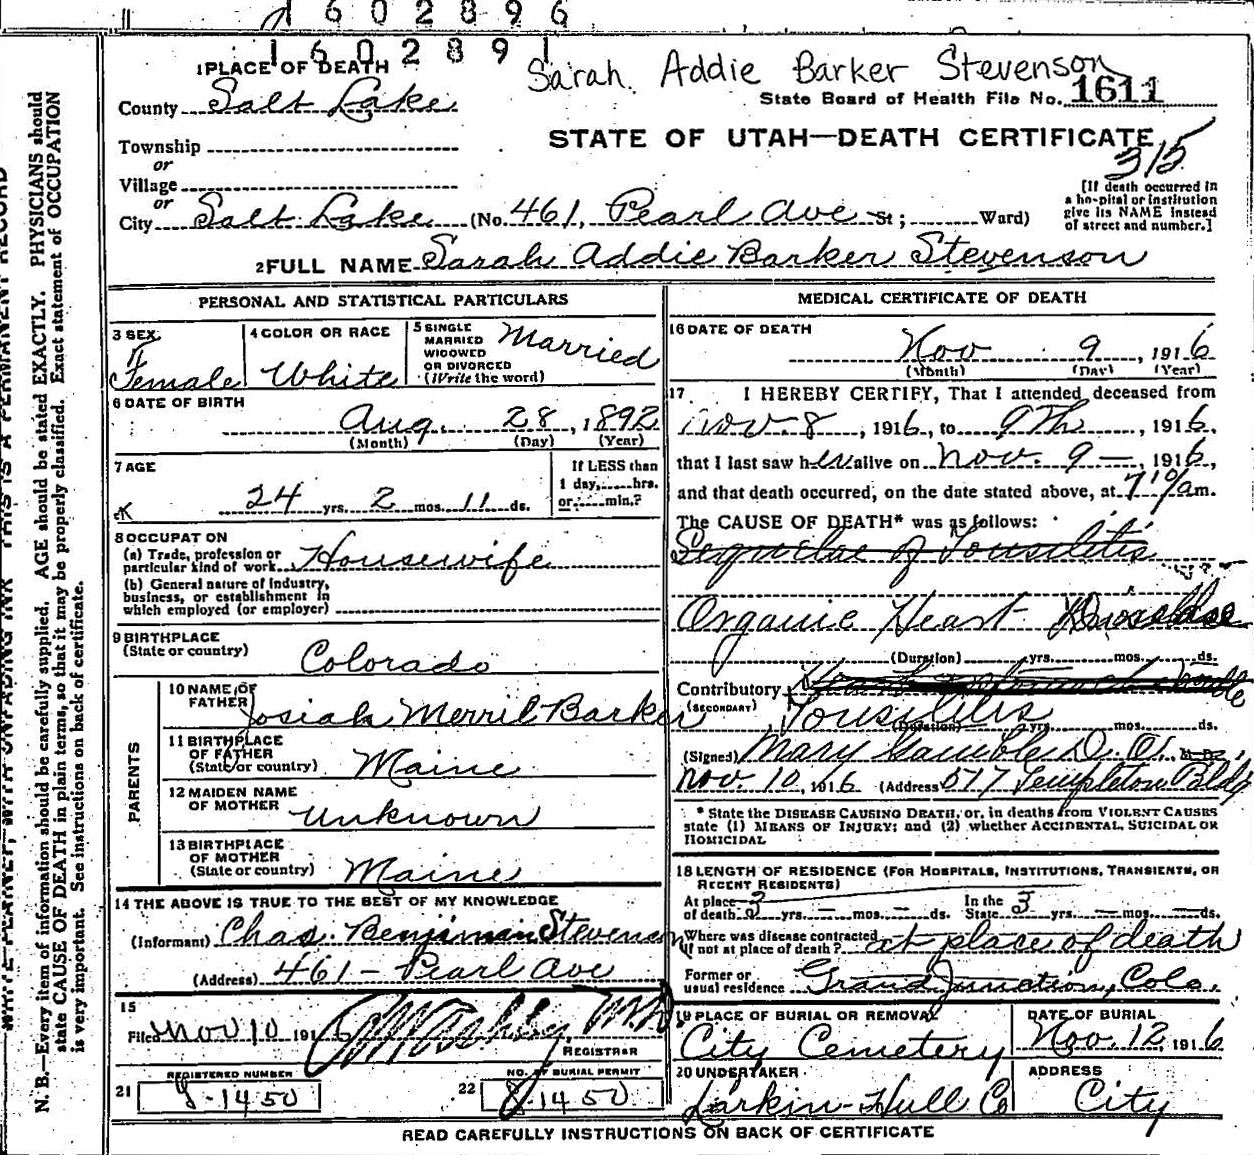 1602896
1602891
Sarah Addie Barker Stevenson
1 PLACE OF DEATH
State Board of Health File No. 1611
County Salt Lake
STATE OF UTAH—DEATH CERTIFICATE
315
Township
or
Village
or
City Salt Lake (No. 461, Pearl Ave St; Ward)
[If death occurred in
a hospital or institution
give its NAME instead
of street and number.]
2 FULL NAME Sarah Addie Barker Stevenson
PERSONAL AND STATISTICAL PARTICULARS
3 SEX
Female
4 COLOR OR RACE
White
5 SINGLE
MARRIED
WIDOWED
OR DIVORCED
(Write the word)
Married
6 DATE OF BIRTH
Aug. 28, 1892
(Month) (Day) (Year)
7 AGE
24 yrs. 2 mos. 11 ds.
If LESS than
1 day, hrs.
or min.?
8 OCCUPATION
(a) Trade, profession or
particular kind of work Housewife
(b) General nature of Industry,
business, or establishment in
which employed (or employer)
9 BIRTHPLACE
(State or country)
Colorado
PARENTS
10 NAME OF
FATHER
Josiah Merril Barker
11 BIRTHPLACE
OF FATHER
(State or country) Maine
12 MAIDEN NAME
OF MOTHER
Unknown
13 BIRTHPLACE
OF MOTHER
(State or country) Maine
14 THE ABOVE IS TRUE TO THE BEST OF MY KNOWLEDGE
(Informant) Chas. Benjiman Stevenson
(Address) 461 - Pearl Ave
15
Filed Nov 10 1916
REGISTRAR
REGISTERED NUMBER
21 8-1450
NO. OF BURIAL PERMIT
22 8-1450
MEDICAL CERTIFICATE OF DEATH
16 DATE OF DEATH
Nov 9, 1916
(Month) (Day) (Year)
17 I HEREBY CERTIFY, That I attended deceased from
Nov. 8, 1916, to 9th, 1916,
that I last saw her alive on Nov. 9 —, 1916,
and that death occurred, on the date stated above, at 7 10/am.
The CAUSE OF DEATH* was as follows:
Sequelae of Tonsilitis
Organic Heart Disease
(Duration) yrs. mos. ds.
Contributory
(SECONDARY) Tonsilitis
(Duration) yrs. mos. ds.
(Signed) Mary Gamble D.O. M.D.,
Nov. 10, 1916 (Address) 517 Templeton Bldg
* State the DISEASE CAUSING DEATH, or, in deaths from VIOLENT CAUSES
state (1) MEANS OF INJURY; and (2) whether ACCIDENTAL, SUICIDAL OR
HOMICIDAL
18 LENGTH OF RESIDENCE (FOR HOSPITALS, INSTITUTIONS, TRANSIENTS, OR
RECENT RESIDENTS)
At place
of death 3 yrs. — mos. — ds.
In the
State 3 yrs. — mos. — ds.
Where was disease contracted
if not at place of death? at place of death
Former or
usual residence Grand Junction, Colo.
19 PLACE OF BURIAL OR REMOVAL
City Cemetery
DATE OF BURIAL
Nov. 12, 1916
20 UNDERTAKER
Larkin-Hull Co
ADDRESS
City
READ CAREFULLY INSTRUCTIONS ON BACK OF CERTIFICATE
N. B.—Every item of information should be carefully supplied. AGE should be stated EXACTLY. PHYSICIANS should
state CAUSE OF DEATH in plain terms, so that it may be properly classified. Exact statement of OCCUPATION
is very important. See instructions on back of certificate.